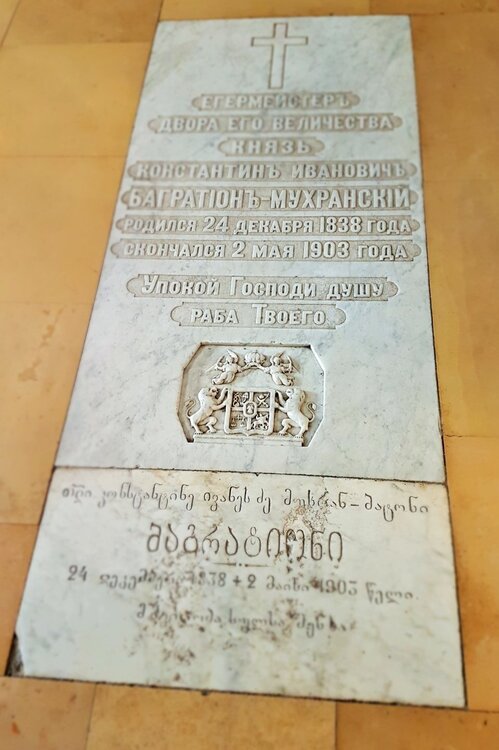 ЕГЕРМЕЙСТЕРЪ
ДВОРА ЕГО ВЕЛИЧЕСТВА
КНЯЗЬ
КОНСТАНТИНЪ ИВАНОВИЧЪ
БАГРАТІОНЪ-МУХРАНСКІЙ
РОДИЛСЯ 24 ДЕКАБРЯ 1838 ГОДА
СКОНЧАЛСЯ 2 МАЯ 1903 ГОДА
УПОКОЙ ГОСПОДИ ДУШУ
РАБА ТВОЕГО
კონსტანტინე ივანეს ძე მუხრან-ბატონი
ბაგრატიონი
24 დეკემბერი 1838 + 2 მაისი 1903 წელი.
სულსა